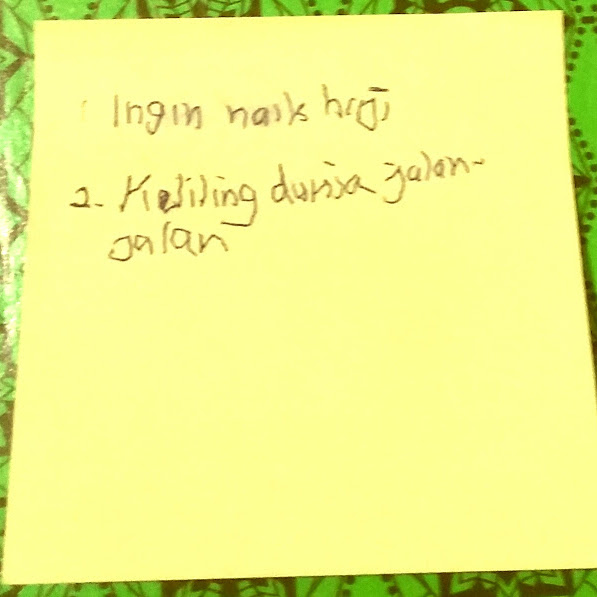 1 Ingin naik haji
2. Keliling dunia jalan-
jalan